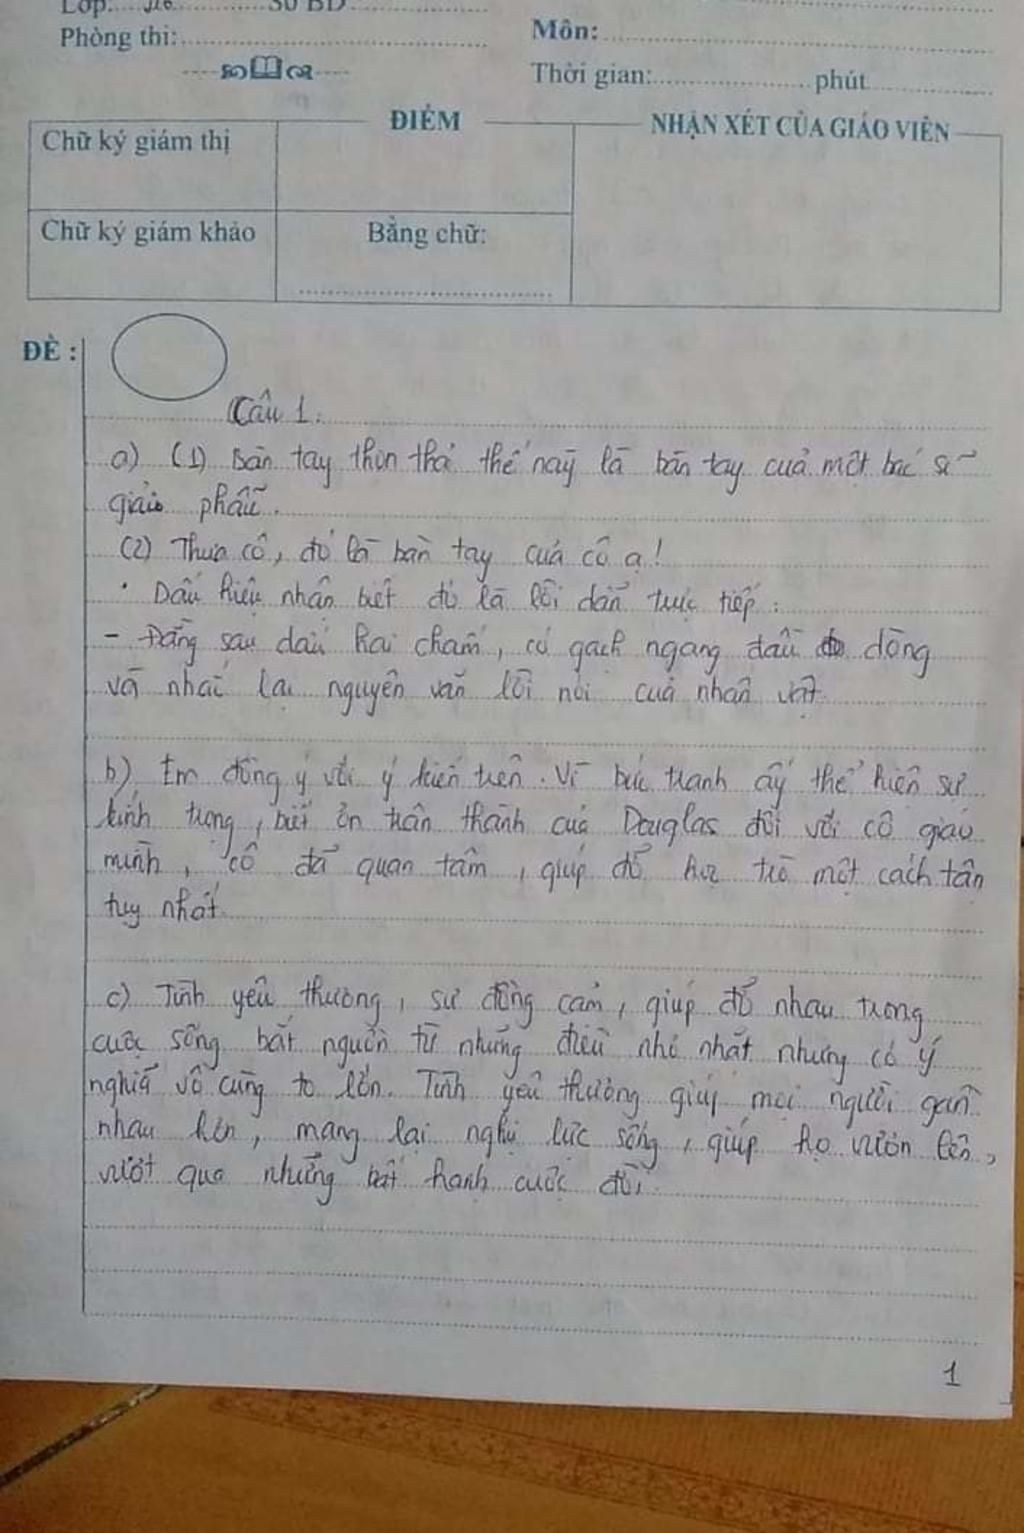 Lớp: Số BD
Phòng thi:
Môn:
Thời gian: phút
ĐIỂM
NHẬN XÉT CỦA GIÁO VIÊN
Chữ ký giám thị
Chữ ký giám khảo
Bằng chữ:
ĐỀ :
Câu 1:
a) (1) Bàn tay thon thả thế này là bàn tay của một bác sĩ
giải phẫu.
(2) Thưa cô, đó là bàn tay của cô ạ!
• Dấu hiệu nhận biết đó là lời dẫn trực tiếp:
- Đằng sau dấu hai chấm, có gạch ngang đầu dòng
và nhắc lại nguyên văn lời nói của nhân vật
b) Em đồng ý với ý kiến trên. Vì bức tranh ấy thể hiện sự
kính trọng, biết ơn chân thành của Douglas đối với cô giáo
mình, cô đã quan tâm, giúp đỡ học trò một cách tận
tụy nhất.
c) Tình yêu thương, sự đồng cảm, giúp đỡ nhau trong
cuộc sống bắt nguồn từ những điều nhỏ nhất nhưng có ý
nghĩa vô cùng to lớn. Tình yêu thương giúp mọi người gần
nhau hơn, mang lại nghị lực sống, giúp họ vươn lên,
vượt qua những bất hạnh cuộc đời.
1